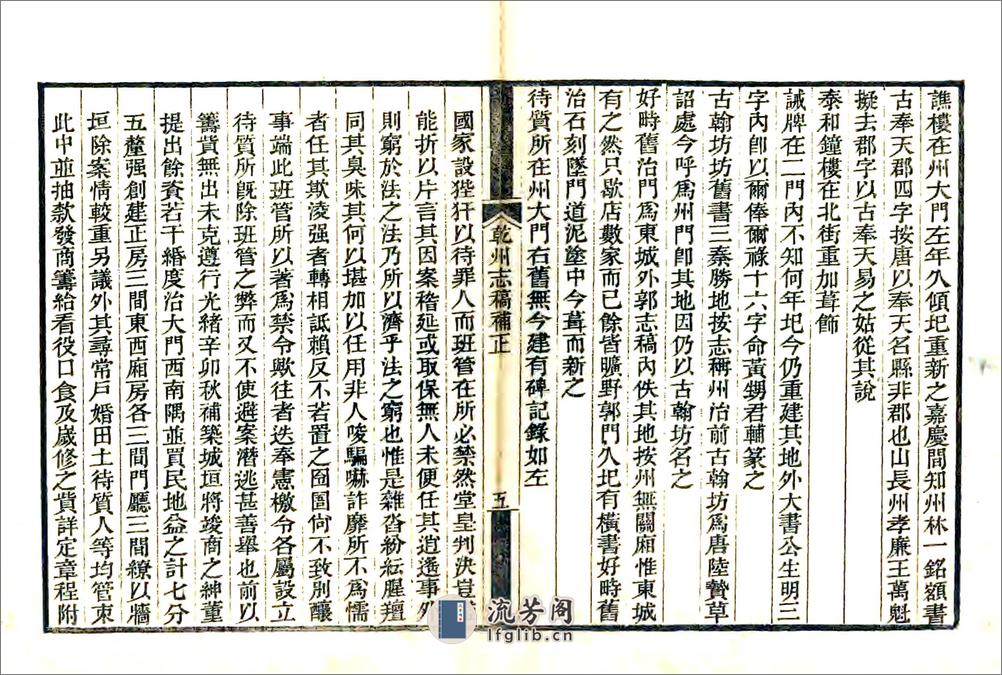 譙樓在州大門左年久傾圯重新之嘉慶間知州林一銘額書
古奉天郡四字按唐以奉天名縣非郡也山長州孝廉王萬魁
擬去郡字以古奉天易之姑從其說
泰和鐘樓在北街重加葺飾
誡牌在二門內不知何年圯今仍重建其地外大書公生明三
字內卽以爾俸爾祿十六字命黃甥君輔篆之
古翰坊坊舊書三秦勝地按志稱州治前古翰坊爲唐陸贄草
詔處今呼爲州門卽其地因仍以古翰坊名之
好畤舊治門爲東城外郭志稿內佚其地按州無關廂惟東城
有之然只歇店數家而已餘皆曠野郭門久圯有橫書好畤舊
治石刻墜門道泥塗中今葺而新之
待質所在州大門右舊無今建有碑記錄如左
乾州志稿補正
五
國家設狴犴以待罪人而班管在所必禁然堂皇判決豈
能折以片言其因案稽延或取保無人未便任其逍遙事外
則窮於法之法乃所以濟乎法之窮也惟是雜沓紛紜腥羶
同其臭味其何以堪加以任用非人唆騙嚇詐靡所不爲懦
者任其欺淩强者轉相詆賴反不若置之囹圄何不致別釀
事端此班管所以著爲禁令歟往者迭奉憲檄令各屬設立
待質所旣除班管之弊而又不使避案潛逃甚善舉也前以
籌貲無出未克遵行光緒辛卯秋補築城垣將竣商之紳董
提出餘資若干緡度治大門西南隅並買民地益之計七分
五釐强創建正房三間東西廂房各三間門廳三間繚以牆
垣除案情較重另議外其尋常戶婚田土待質人等均管束
此中並抽款發商籌給看役口食及歲修之貲詳定章程附
流芳阁
lfglib.cn